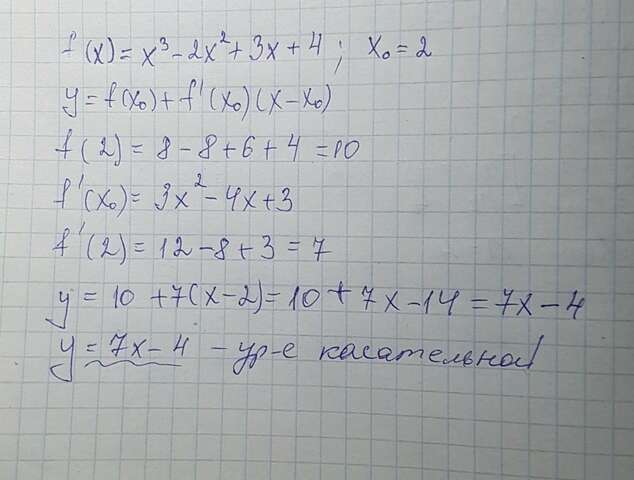 f(x) = x³ - 2x² + 3x + 4 ; x₀ = 2
y = f(x₀) + f'(x₀)(x - x₀)
f(2) = 8 - 8 + 6 + 4 = 10
f'(x₀) = 3x² - 4x + 3
f'(2) = 12 - 8 + 3 = 7
y = 10 + 7(x - 2) = 10 + 7x - 14 = 7x - 4
y = 7x - 4 - ур-е касательной